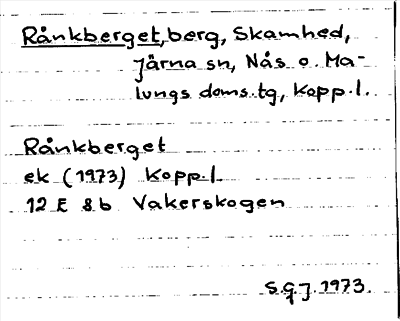 Rånkberget, berg, Skamhed,
Järna sn, Nås o. Ma-
lungs doms.tg, Kopp.l.
Rånkberget
ek (1973) Kopp.l.
12 E 8b Vakerskogen
S.G.J. 1973.